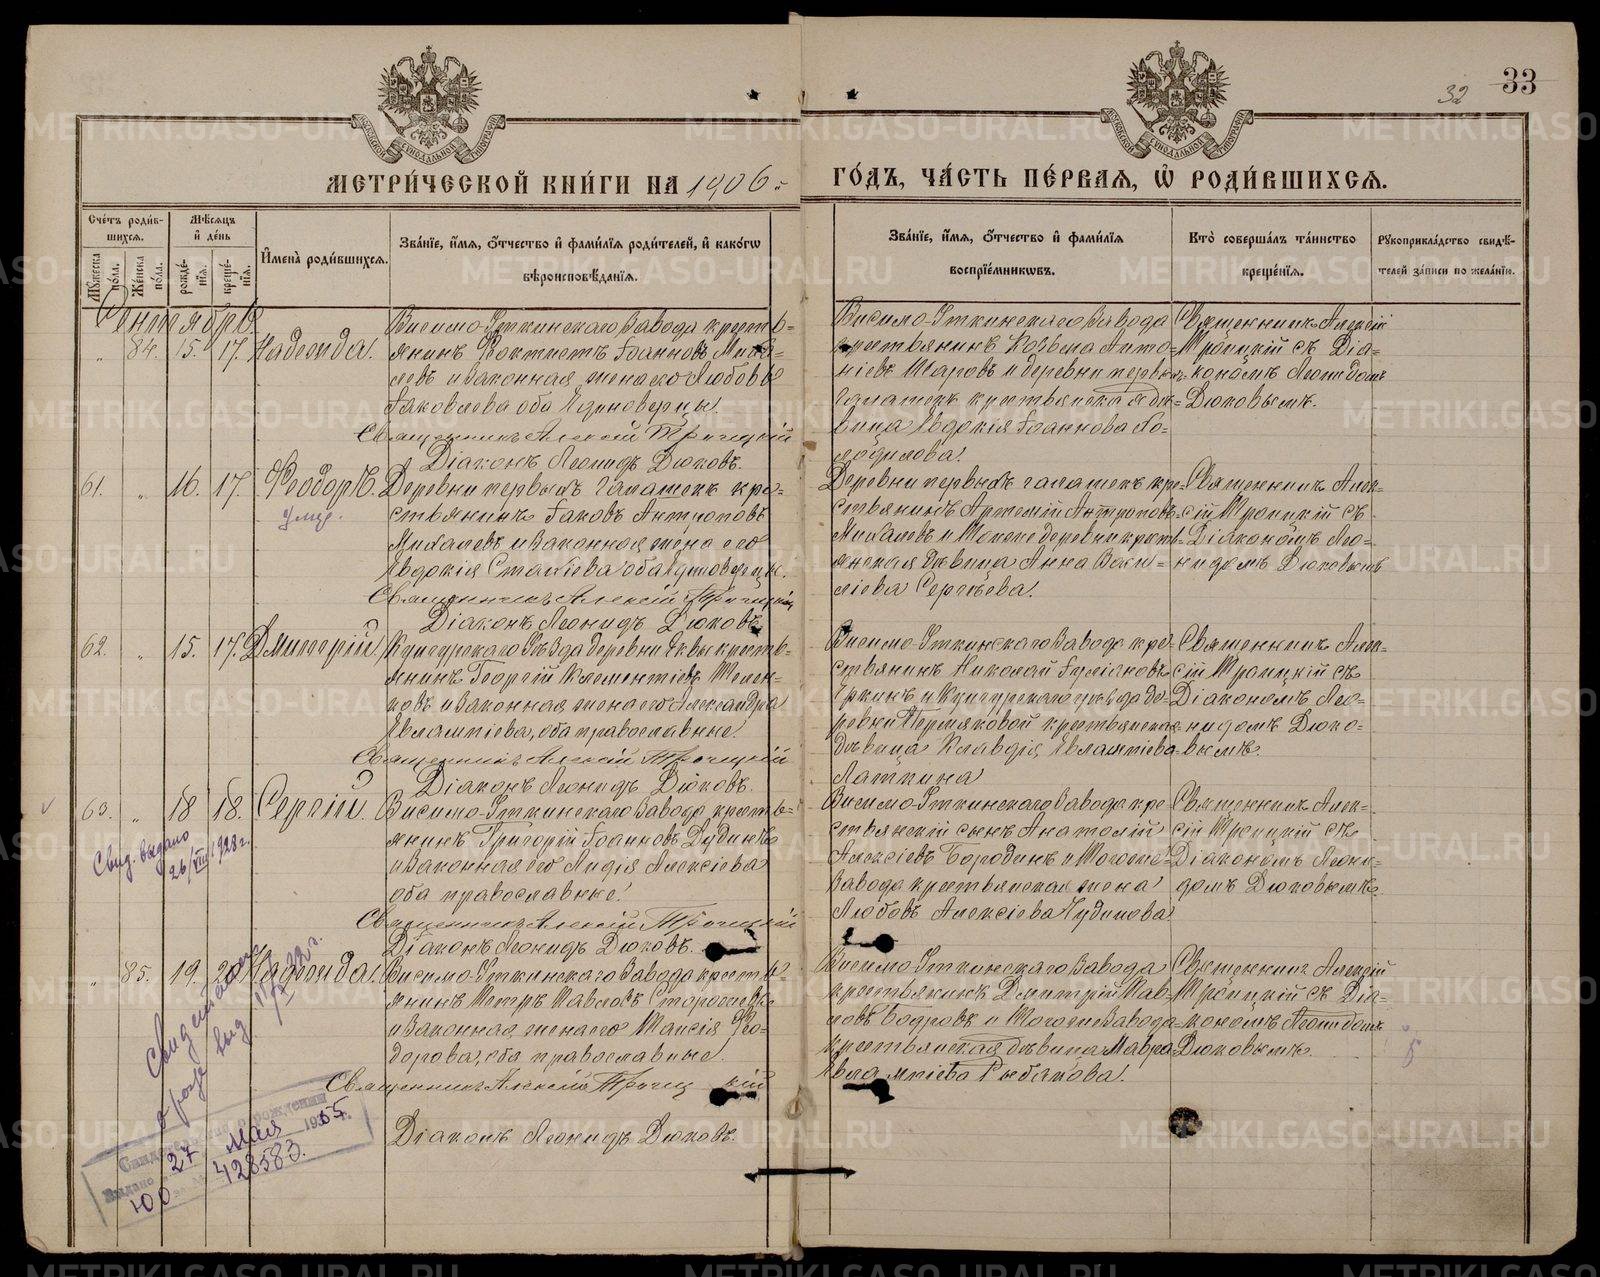 32 33
МЕТРИ́ЧЕСКОЙ КНИ́ГИ НА 1906 й
ГО́ДЪ, ЧА́СТЬ ПЕ́РВАЯ, Ѡ҆ РОДИ́ВШИХСЯ.
Сче́тъ роди́в-
шихся.
Мꙋ́жеска по́ла.
Же́нска по́ла.
Мѣ́сяцъ
и҆ де́нь
рожде́-
нїя.
креще́-
нїя.
И҆мена̀ роди́вшихся.
Зва́нїе, и҆́мя, ѻ҆́тчество и҆ фами́лїя роди́телей, и҆ како́гѡ
вѣроисповѣ́данїя.
Зва́нїе, и҆́мя, ѻ҆́тчество и҆ фами́лїя
воспрїе́мникѡвъ.
Кто̀ соверша́лъ та́инство
креще́нїя.
Рꙋкоприкла́дство свидѣ́-
телей за́писи по жела́нїю.
Сентябрь
„ 84. 15. 17. Надежда.
Висимо-Уткинскаго завода кресть-
янинъ Феоктистъ Іоанновъ Миха-
левъ и законная жена его Любовь
Іаковлева оба Единоверцы.
Священникъ Алексій Троицкій
Діаконъ Леонидъ Дюковъ.
Висимо-Уткинскаго завода
крестьянинъ Козьма Анто-
ніевъ Шаровъ и деревни первыхъ
Галашекъ крестьянская дѣ-
вица Евдокія Іоаннова
Священникъ Алексій
Троицкій съ Діа-
кономъ Леонидомъ
Дюковымъ.
61. „ 16. 17. Феодоръ.
умер.
Деревни первыхъ Галашекъ кре-
стьянинъ Іаковъ Антроповъ
Михалевъ и законная жена его
Евдокія Стахіева оба Единоверцы.
Священникъ Алексій Троицкій
Діаконъ Леонидъ Дюковъ.
Деревни первыхъ галашекъ кре-
стьянинъ Артемій Антроповъ
Михалевъ и тойже деревни кресть-
янская дѣвица Анна Васи-
ліева Сергѣева.
Священникъ Алек-
сій Троицкій съ
Діакономъ Лео-
нидомъ Дюковымъ
62. „ 15. 17. Димитрій.
Кунгурскаго уѣзда деревни кресть-
янинъ Георгій Климентіевъ
и законная жена его Александра
Евлампіева, оба православные.
Священникъ Алексій Троицкій
Діаконъ Леонидъ Дюковъ.
Висимо-Уткинскаго завода кре-
стьянинъ Николай Іуліановъ
и Кунгурскаго уѣзда де-
ревни Пермяковой крестьянская
дѣвица Клавдія Евлампіева
Латкина
Священникъ Алек-
сій Троицкій съ
Діакономъ Лео-
нидомъ Дюко-
вымъ.
63. „ 18 18. Сергій.
Свид. выдано
26/VIII 1928 г.
Висимо-Уткинскаго завода кресть-
янинъ Григорій Іоанновъ Дудинъ
и законная его Лидія Алексіева
оба православные.
Священникъ Алексій Троицкій
Діаконъ Леонидъ Дюковъ.
Висимо-Уткинскаго завода кре-
стьянскій сынъ Анатолій
Алексіевъ Бородинъ и тогоже
завода крестьянская жена
Любовь Алексіева Чудинова
Священникъ Алек-
сій Троицкій съ
Діакономъ Леони-
домъ Дюковымъ.
„ 85. 19. 20. Надежда.
Висимо-Уткинскаго завода кресть-
янинъ Петръ Павловъ Сторожевъ
и законная жена его Таисія Фео-
дорова, оба православные.
Священникъ Алексій Троицкій
Діаконъ Леонидъ Дюковъ.
Висимо-Уткинскаго завода
крестьянинъ Дмитрій Пав-
ловъ Бодровъ и тогоже завода
крестьянская дѣвица Мавра
Евлампіева Рыбакова.
Священникъ Алексій
Троицкій съ Діа-
кономъ Леонидомъ
Дюковымъ.
Свидетельство
о рожд выд
Свидетельство о рождении
Выдано 27 мая 1955 г.
ЮО за № 428583.
METRIKI.GASO-URAL.RU